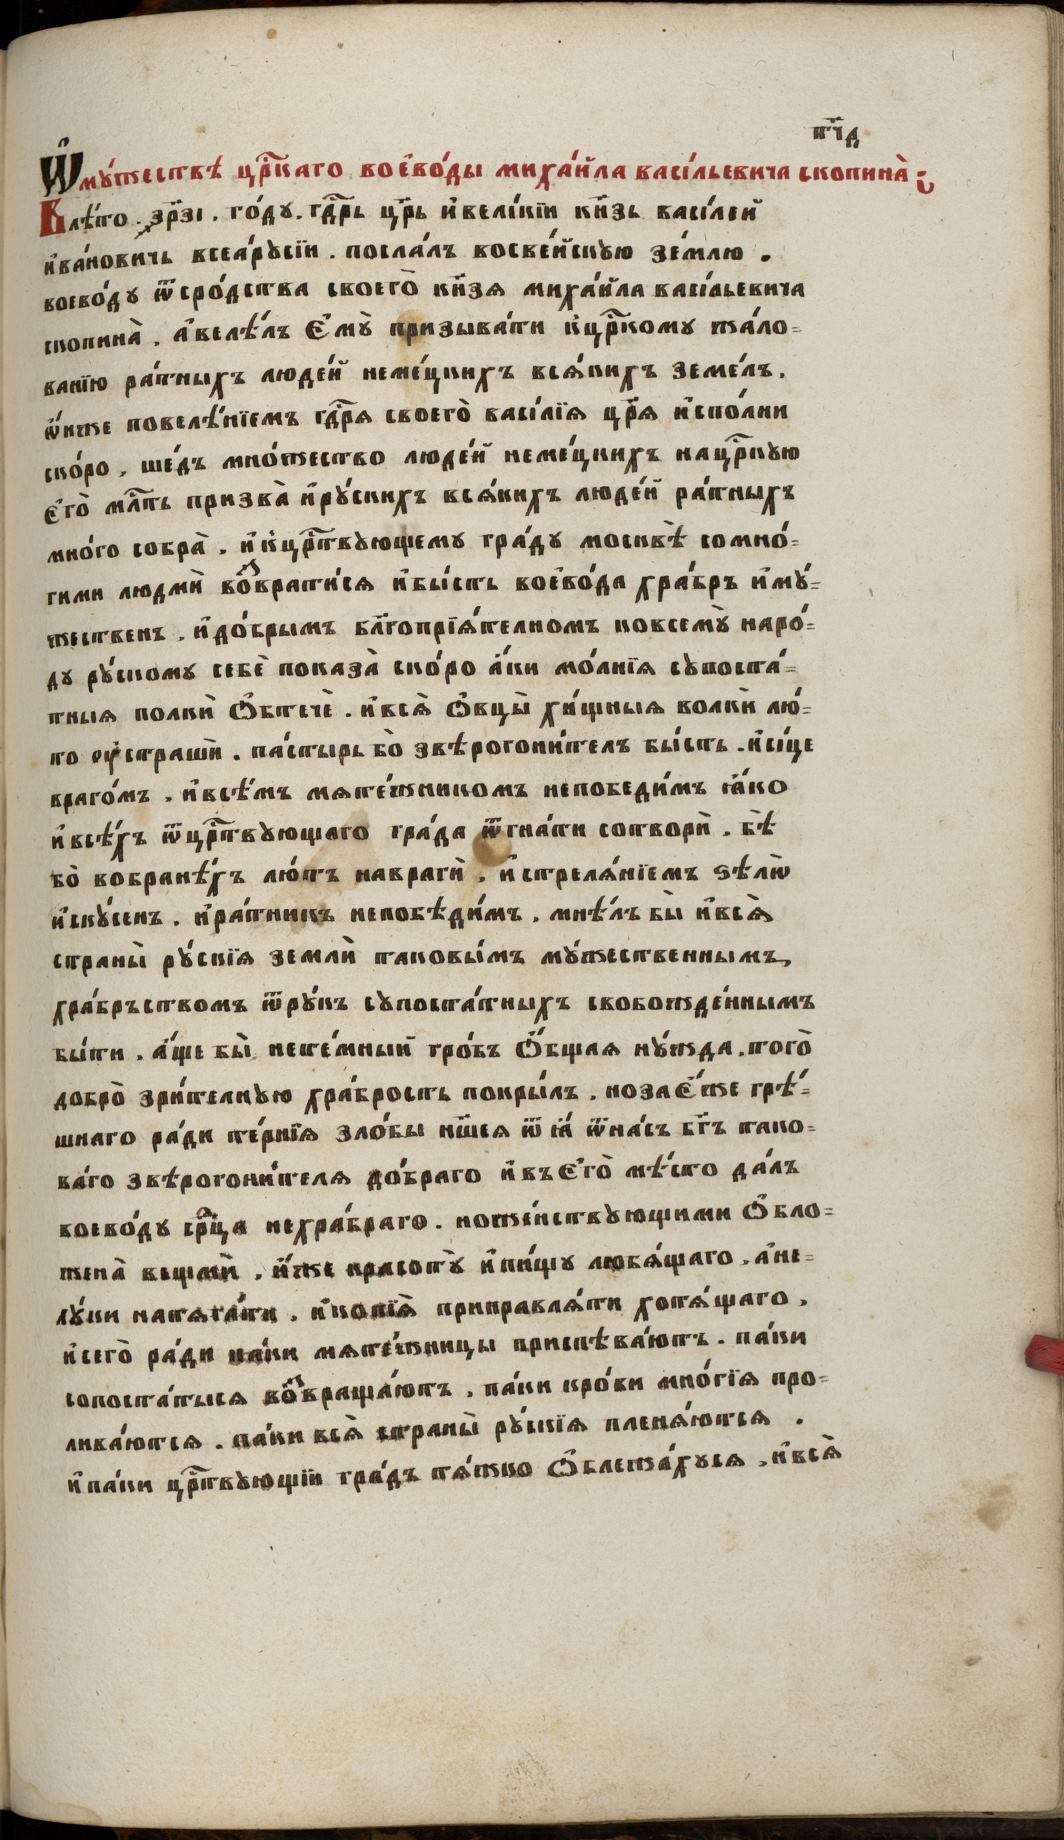 пт҃ід
Ѡ҆ мꙋ́жествѣ цр҃каго воево́ды миха́йла васі́льевича скопина̀
Влѣ́то . зр҃зі . го́дꙋ . гдр҃ь цр҃ь и҆вели́кїи кн҃зь васі́лей
и҆ва́новичь всеа́рꙋсїи . посла́лъ восвѣ́йскꙋю зе́млю .
воево́дꙋ ѿсро́дства своего̀ кн҃зя миха́йла васі́льевича
скопина̀ . а҆велѣ́лъ є҆мꙋ̀ призыва́ти к̾цр҃кому жа́ло=
ванїю ра́тныхъ люде́й неме́цкихъ вся́кихъ земе́лъ .
ѡ҆́нже повелѣ́нїемъ гдр҃я своего̀ васі́лїя цр҃я и҆спо́лни
ско́ро , ше́дъ мно́жество люде́й неме́цкихъ нацр҃кꙋю
є҆го̀ мл҃ть призва̀ и҆рꙋ́скихъ вся́кихъ люде́й ра́тныхъ
мно́го собра̀ . и҆к̾цр҃твꙋющемꙋ гра́дꙋ москвѣ̀ сомно́=
гими людмѝ возврати́ся и҆бы́сть воево́да хра́бръ и҆мꙋ́=
жественъ . и҆до́брымъ бл҃гопрїя́телномъ ковсемꙋ̀ наро́=
дꙋ рꙋ́скомꙋ себѐ показа̀ ско́ро а҆́ки мо́лнїя сꙋпоста́=
тныя полкѝ ѡ҆бтечѐ . и҆вся̀ ѡ҆вцы̀ хи́щныя волкѝ лю́=
то ᲂу҆страшѝ . па́стырь бо̀ звѣрогони́тель бы́сть . и҆си́це
враго́мъ . и҆всѣ́мъ мяте́жникомъ непобѣди́мъ ꙗ҆́ко
и҆всѣ́хъ ѿцр҃твꙋющаго гра́да ѿгна́ти сотворѝ . бѣ̀
бо̀ вобранѣ́хъ лю́тъ навраги̂ . и҆стреля́нїемъ ѕѣлѡ̀
и҆скꙋ́сенъ . и҆ра́тникъ непобѣди́мъ . мнѣ́лъ бы̀ и҆вся̀
страны̀ рꙋ́скїя землѝ таковы́мъ мꙋ́жественнымъ ,
хра́бръствомъ ѿрꙋ́къ сꙋпоста́тныхъ свобожде́ннымъ
бы́ти . а҆́ще бы̀ нете́мный гро́бъ ѡ҆́бщая нꙋ́жда . того̀
добро̀ зри́телнꙋю хра́брость покры́лъ . ноза є҆́же грѣ́=
шнаго ра́ди те́рнїя зло́бы нш҃ея ѿꙗ҆́ ѿна́съ бг҃ъ тако=
ва́го звѣрогони́теля до́браго и҆въ є҆го̀ мѣ́сто да́лъ
воево́дꙋ ср҃дца нехра́браго . ноже́нствꙋющими ѡ҆бло=
жена̀ вещмѝ . и҆́же красотꙋ̀ и҆пи́щꙋ любя́щаго . а҆не=
лꙋ́ки натяга́ти . и҆копїя̀ приправля́ти хотя́щаго .
и҆сего̀ ра́ди па́ки мяте́жницы приспѣва́ютъ . па́ки
сопоста́тыся возвраща́ютъ . па́ки кро́ви мно́гїя про=
лива́ются . па́ки вся̀ страны̀ рꙋ́скїя пленя́ются .
и҆па́ки цр҃твꙋющїи гра́дъ тя́жко ѡ҆блежа́хꙋся . и҆вся̀